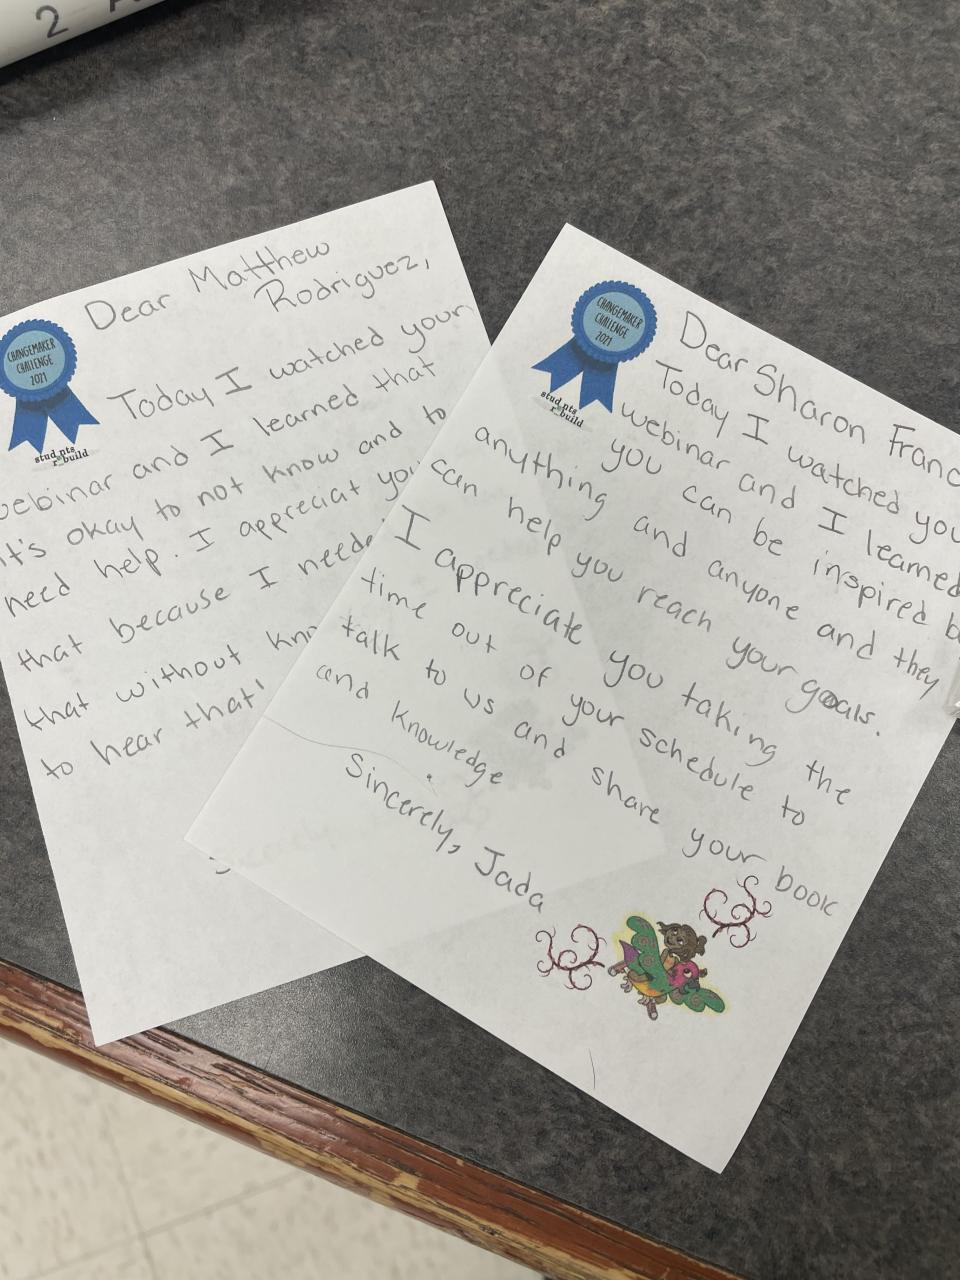 2
Dear Matthew
Rodriguez,
CHANGEMAKER
CHALLENGE
2021
stud_nts
r_build
Today I watched your
webinar and I learned that
it's okay to not know and to
need help. I appreciat you
that because I neede
that without
to hear that!
CHANGEMAKER
CHALLENGE
2021
stud_nts
r_build
Dear Sharon Franc
Today I watched you
webinar and I learned
you can be inspired b
anything and anyone and they
can help you reach your goals.
I appreciate you taking the
time out of your schedule to
talk to us and share your book
and knowledge.
Sincerely, Jada